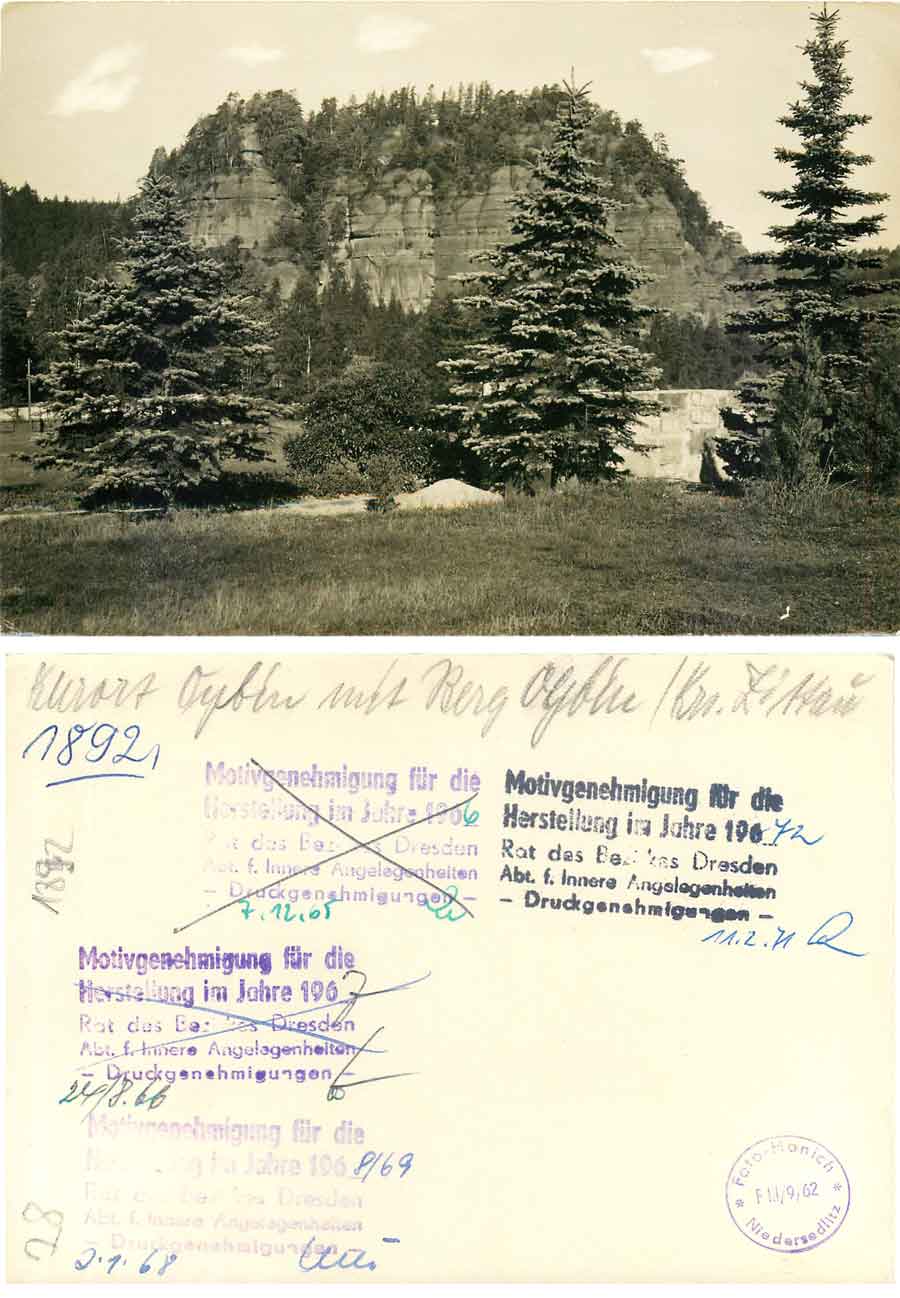 Kurort Oybin mit Berg Oybin / Krs. Zittau
1892,
1892
Motivgenehmigung für die
Herstellung im Jahre 1966
Rat des Bezirkes Dresden
Abt. f. Innere Angelegenheiten
– Druckgenehmigungen –
7.12.65
Motivgenehmigung für die
Herstellung im Jahre 196 72
Rat des Bezirkes Dresden
Abt. f. Innere Angelegenheiten
– Druckgenehmigungen –
11.2.71
Motivgenehmigung für die
Herstellung im Jahre 1967
Rat des Bezirkes Dresden
Abt. f. Innere Angelegenheiten
– Druckgenehmigungen –
24/8.66
Motivgenehmigung für die
Herstellung im Jahre 1968/69
Rat des Bezirkes Dresden
Abt. f. Innere Angelegenheiten
– Druckgenehmigungen
2.1.68
28
Foto-Hanich
F 111/9/62
* Niedersedlitz *